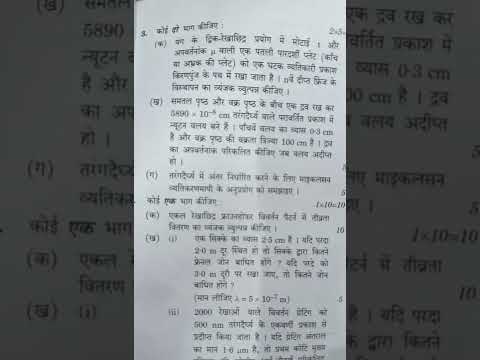 3. कोई दो भाग कीजिए :
(क) यंग के द्विक-रेखाछिद्र प्रयोग में मोटाई t और
अपवर्तनांक μ वाली एक पतली पारदर्शी प्लेट (काँच
या अभ्रक की प्लेट) को एक घटक व्यतिकारी प्रकाश
किरणपुंज के पथ में रखा जाता है । nवें दीप्त फ्रिन्ज के
विस्थापन का व्यंजक व्युत्पन्न कीजिए ।
(ख) समतल पृष्ठ और वक्र पृष्ठ के बीच एक द्रव रख कर
5890 × 10⁻⁸ cm तरंगदैर्ध्य वाले परावर्तित प्रकाश में
न्यूटन वलय बने हैं । पाँचवें वलय का व्यास 0·3 cm
है और वक्र पृष्ठ की वक्रता त्रिज्या 100 cm है । द्रव
का अपवर्तनांक परिकलित कीजिए जब वलय अदीप्त
हो ।
5
(ग) तरंगदैर्ध्य में अंतर निर्धारित करने के लिए माइकलसन
व्यतिकरणमापी के अनुप्रयोग को समझाइए ।
5
कोई एक भाग कीजिए :
1×10=10
(क) एकल रेखाछिद्र फ्राउनहोफर विवर्तन पैटर्न में तीव्रता
वितरण का व्यंजक व्युत्पन्न कीजिए ।
10
(ख) (i) एक सिक्के का व्यास 2·5 cm है । यदि परदा
2·0 m दूर स्थित हो तो सिक्के द्वारा कितने
फ्रेनल ज़ोन बाधित होंगे ? यदि परदे को
3·0 m दूरी पर रखा जाए, तो कितने ज़ोन
बाधित होंगे ?
(मान लीजिए λ = 5 × 10⁻⁷ m)
5
(ii) 2000 रेखाओं वाले विवर्तन ग्रेटिंग को
500 nm तरंगदैर्ध्य के एकवर्णी प्रकाश से
प्रदीप्त किया जाता है । यदि ग्रेटिंग अंतराल
का मान 1·6 μm है, तो प्रथम कोटि मुख्य